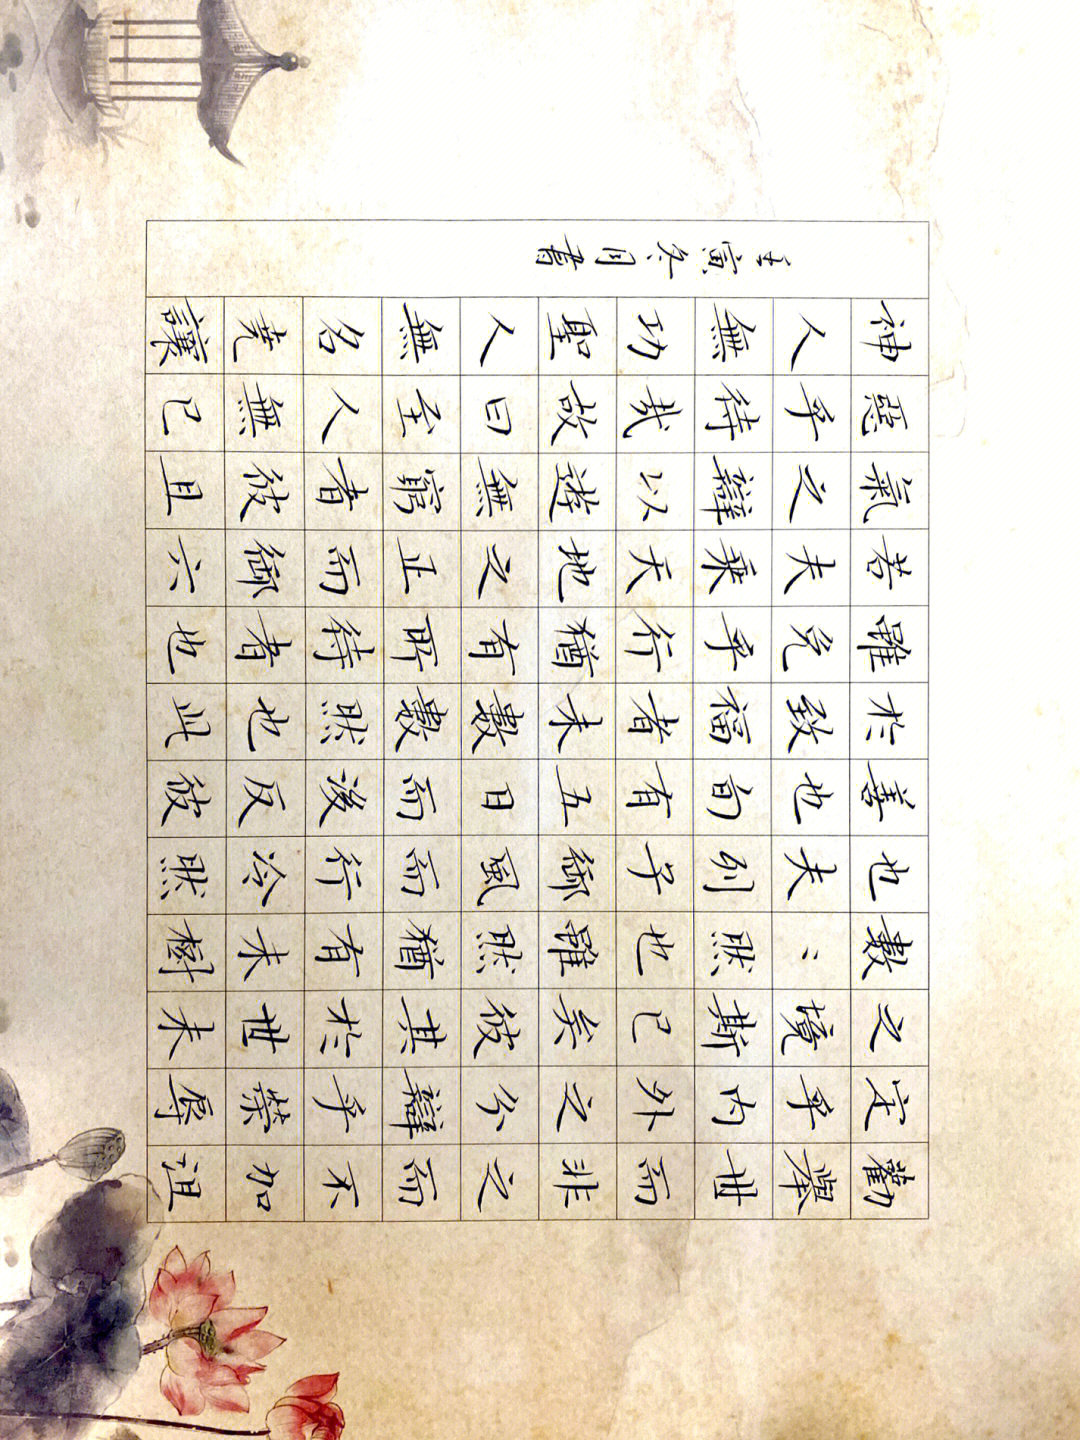 勸舉世而非之而不加沮
定乎內外之分辯乎榮辱
之境斯已矣彼其於世未
數〻然也雖然猶有未樹
也夫列子御風而行泠然
善也旬有五日而後反彼
於致福者未數數然也此
雖免乎行猶有所待者也
若夫乘天地之正而御六
氣之辯以遊無窮者彼且
惡乎待哉故曰至人無已
神人無功聖人無名堯讓
壬寅冬月書